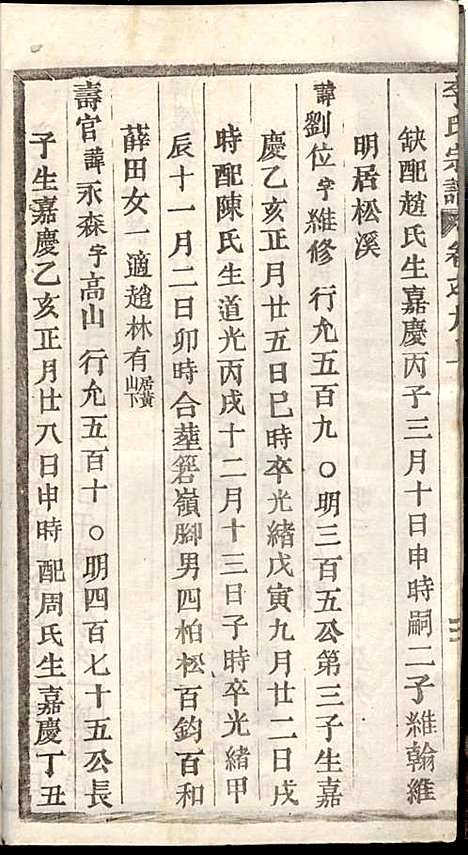 李氏宗譜 卷之九
缺配趙氏生嘉慶丙子三月十日申時嗣二子維翰維
明居松溪
諱劉位字維修行允五百九〇明三百五公第三子生嘉
慶乙亥正月廿五日巳時卒光緒戊寅九月廿二日戌
時配陳氏生道光丙戌十二月十三日子時卒光緒甲
辰十一月二日卯時合塟箬嶺腳男四柏松百鈞百和
薛田女一適趙林有居黃山下
壽官諱永森字高山行允五百十〇明四百七十五公長
子生嘉慶乙亥正月廿八日申時配周氏生嘉慶丁丑